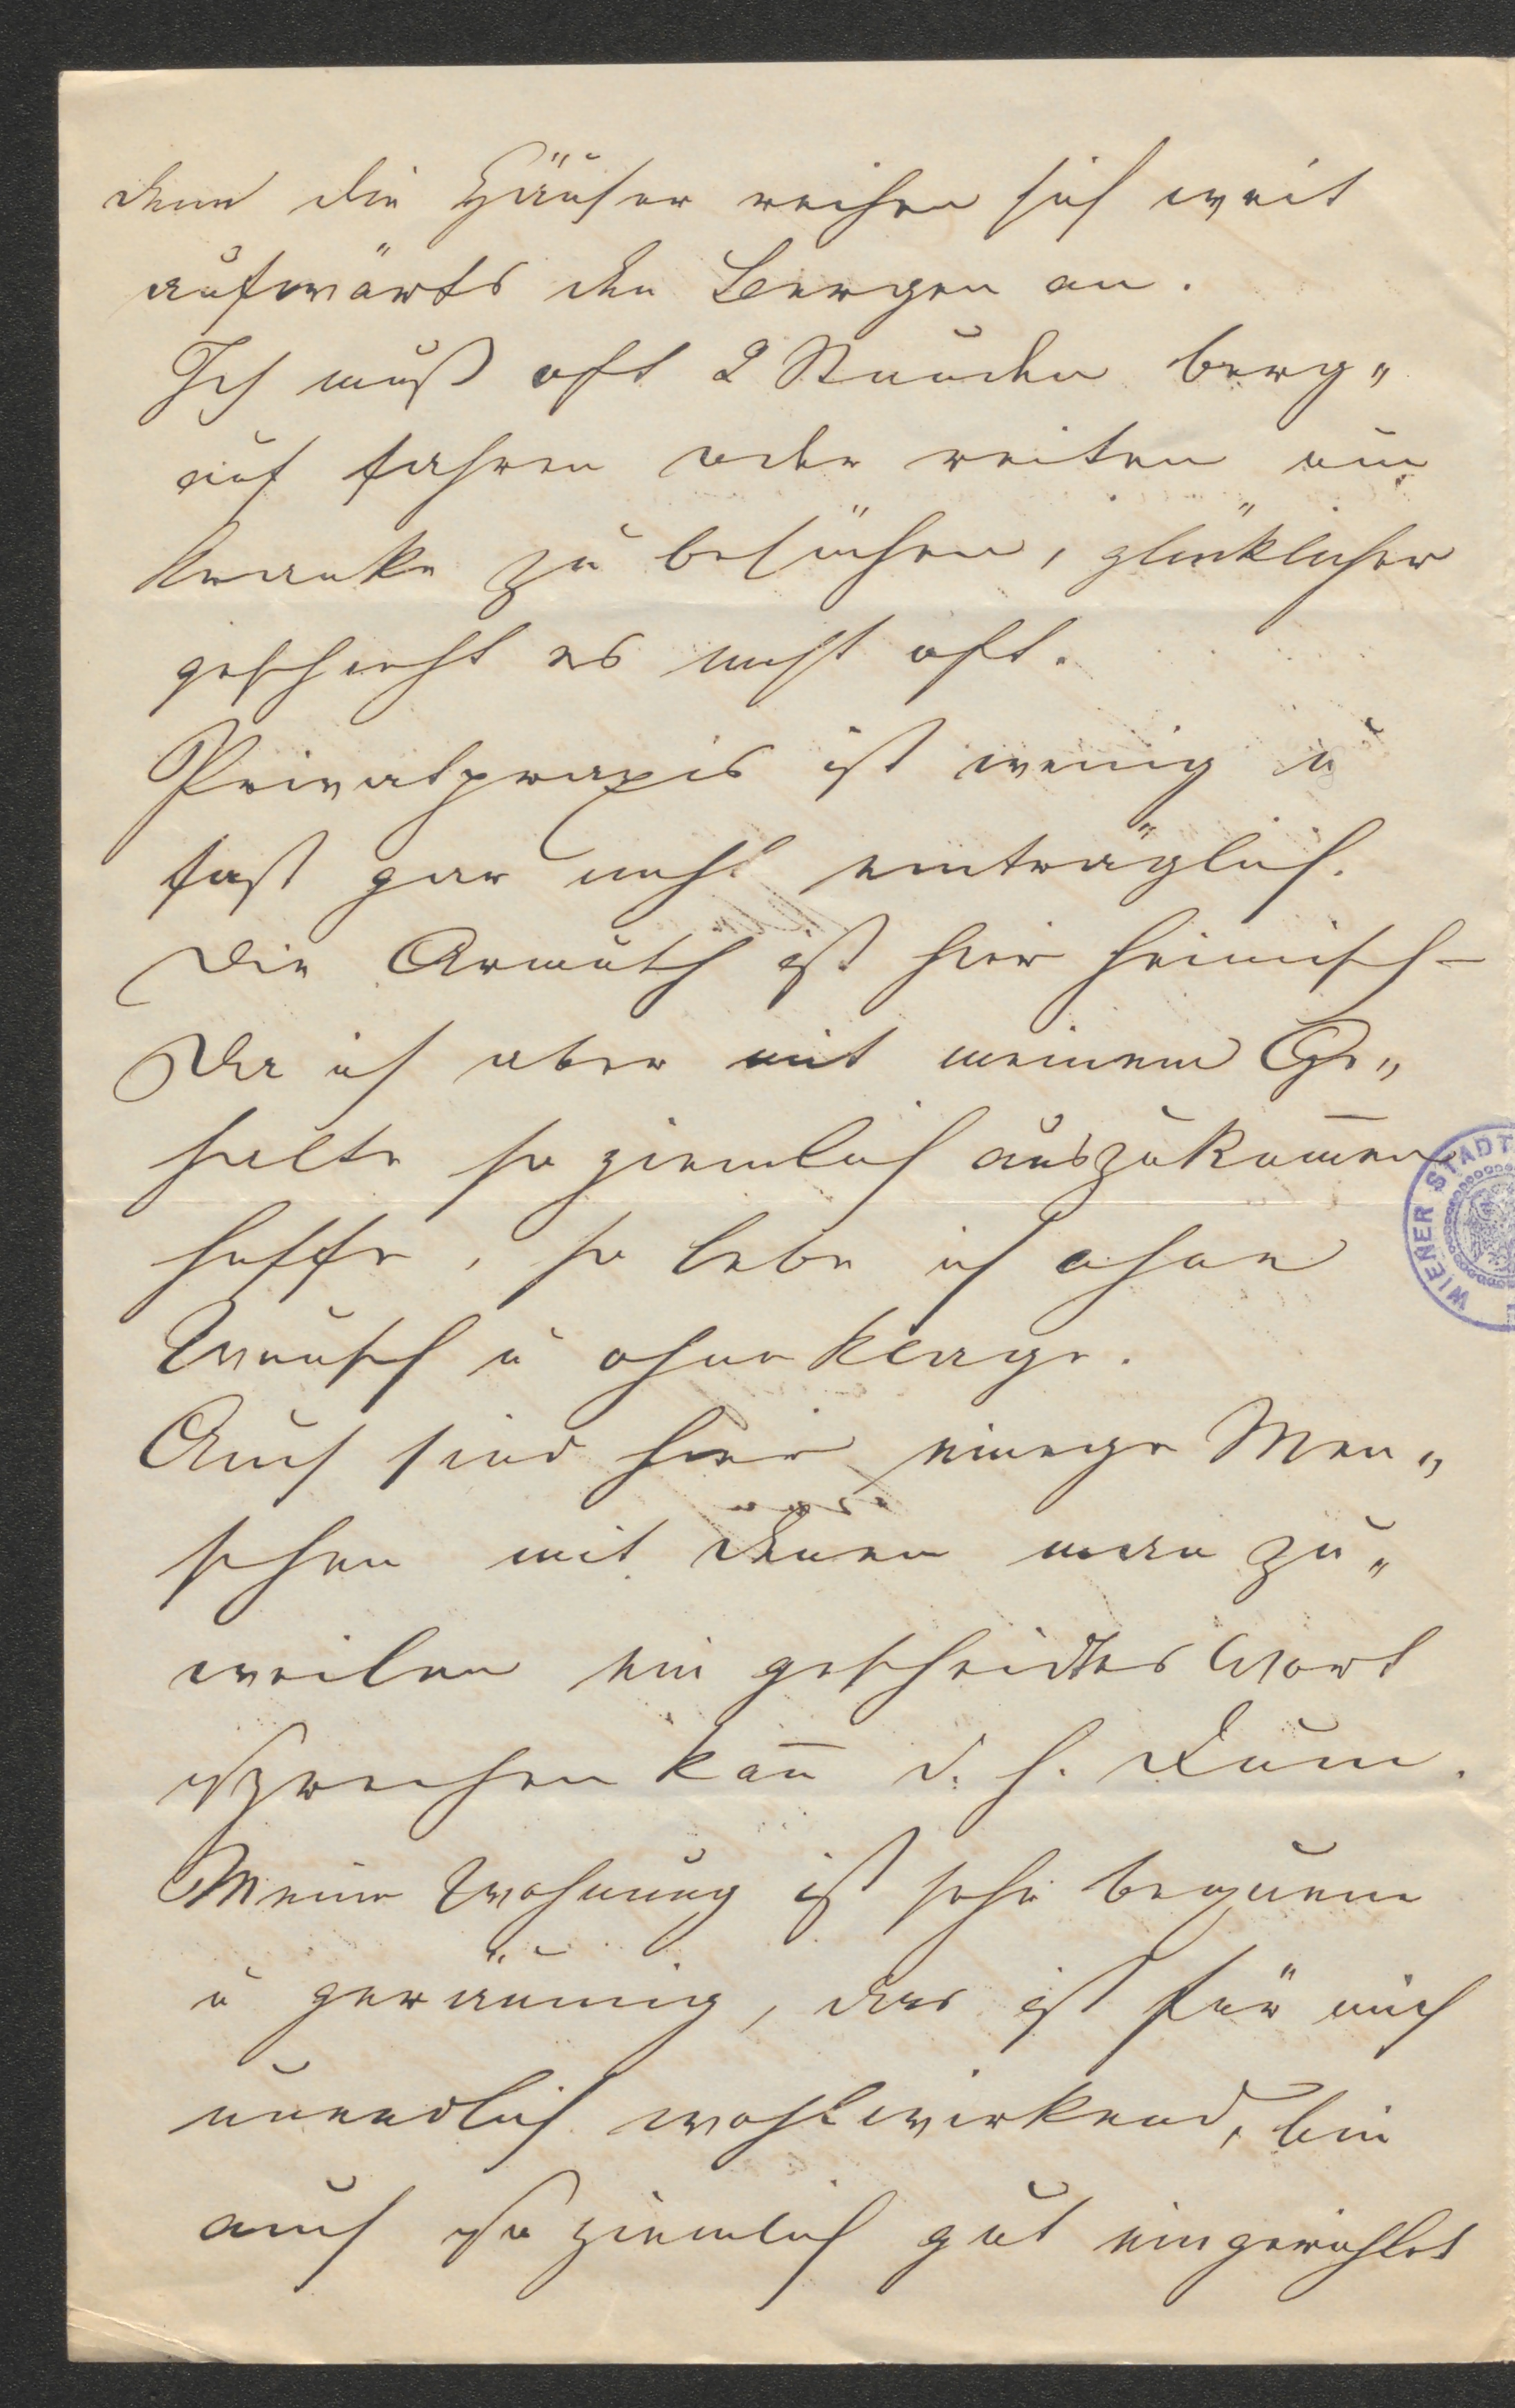 denn die Häuser reihen sich weit
aufwärts den Bergen an.
Ich muß oft 2 Stunden berg„
auf fahren oder reiten um
Kranke zu besuchen, glücklicher
geschieht es nicht oft.
Privatpraxis ist wenig u
fast gar nicht einträglich.
Die Armuth ist hier heimisch –
Da ich aber mit meinem Ge„
halte so ziemlich auszukom̅en
hoffe, so lebe ich ohne
Wunsch u ohne Klage.
Auch sind hier einige Men„
schen mit denen man zu„
weilen ein gescheidtes Wort
sprechen kan̅ d. h. dum̅.
Meine Wohnung ist sehr bequem
u geräumig, das ist für mich
unendlich wohlwirkend, bin
auch so ziemlich gut eingerichtet
WIENER STADT